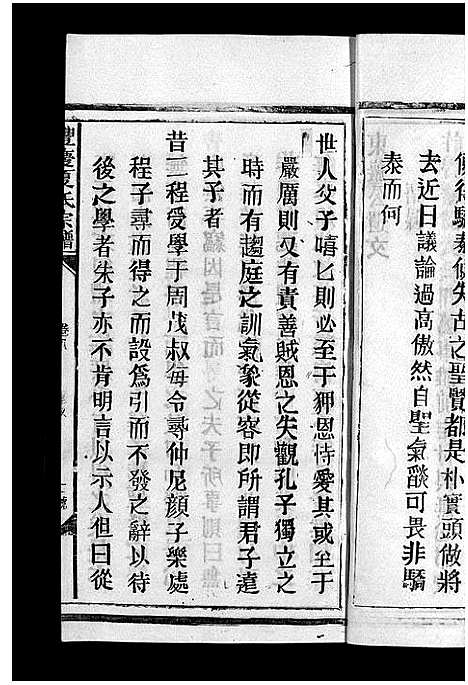 脩得驕泰脩失古之聖賢都是朴實頭做將
去近日議論過高傲然自聖氣燄可畏非驕
泰而何
世人父子嘻匕則必至于狎恩恃愛其或至于
嚴厲則又有責善賊恩之失觀孔子獨立之
時而有趨庭之訓氣象從容即所謂君子遠
其子者
昔二程受學于周茂叔每令尋仲尼顔子樂處
程子尋而得之而設爲引而不發之辭以待
後之學者朱子亦不肯明言以示人但曰從
豐慶夏氏宗譜